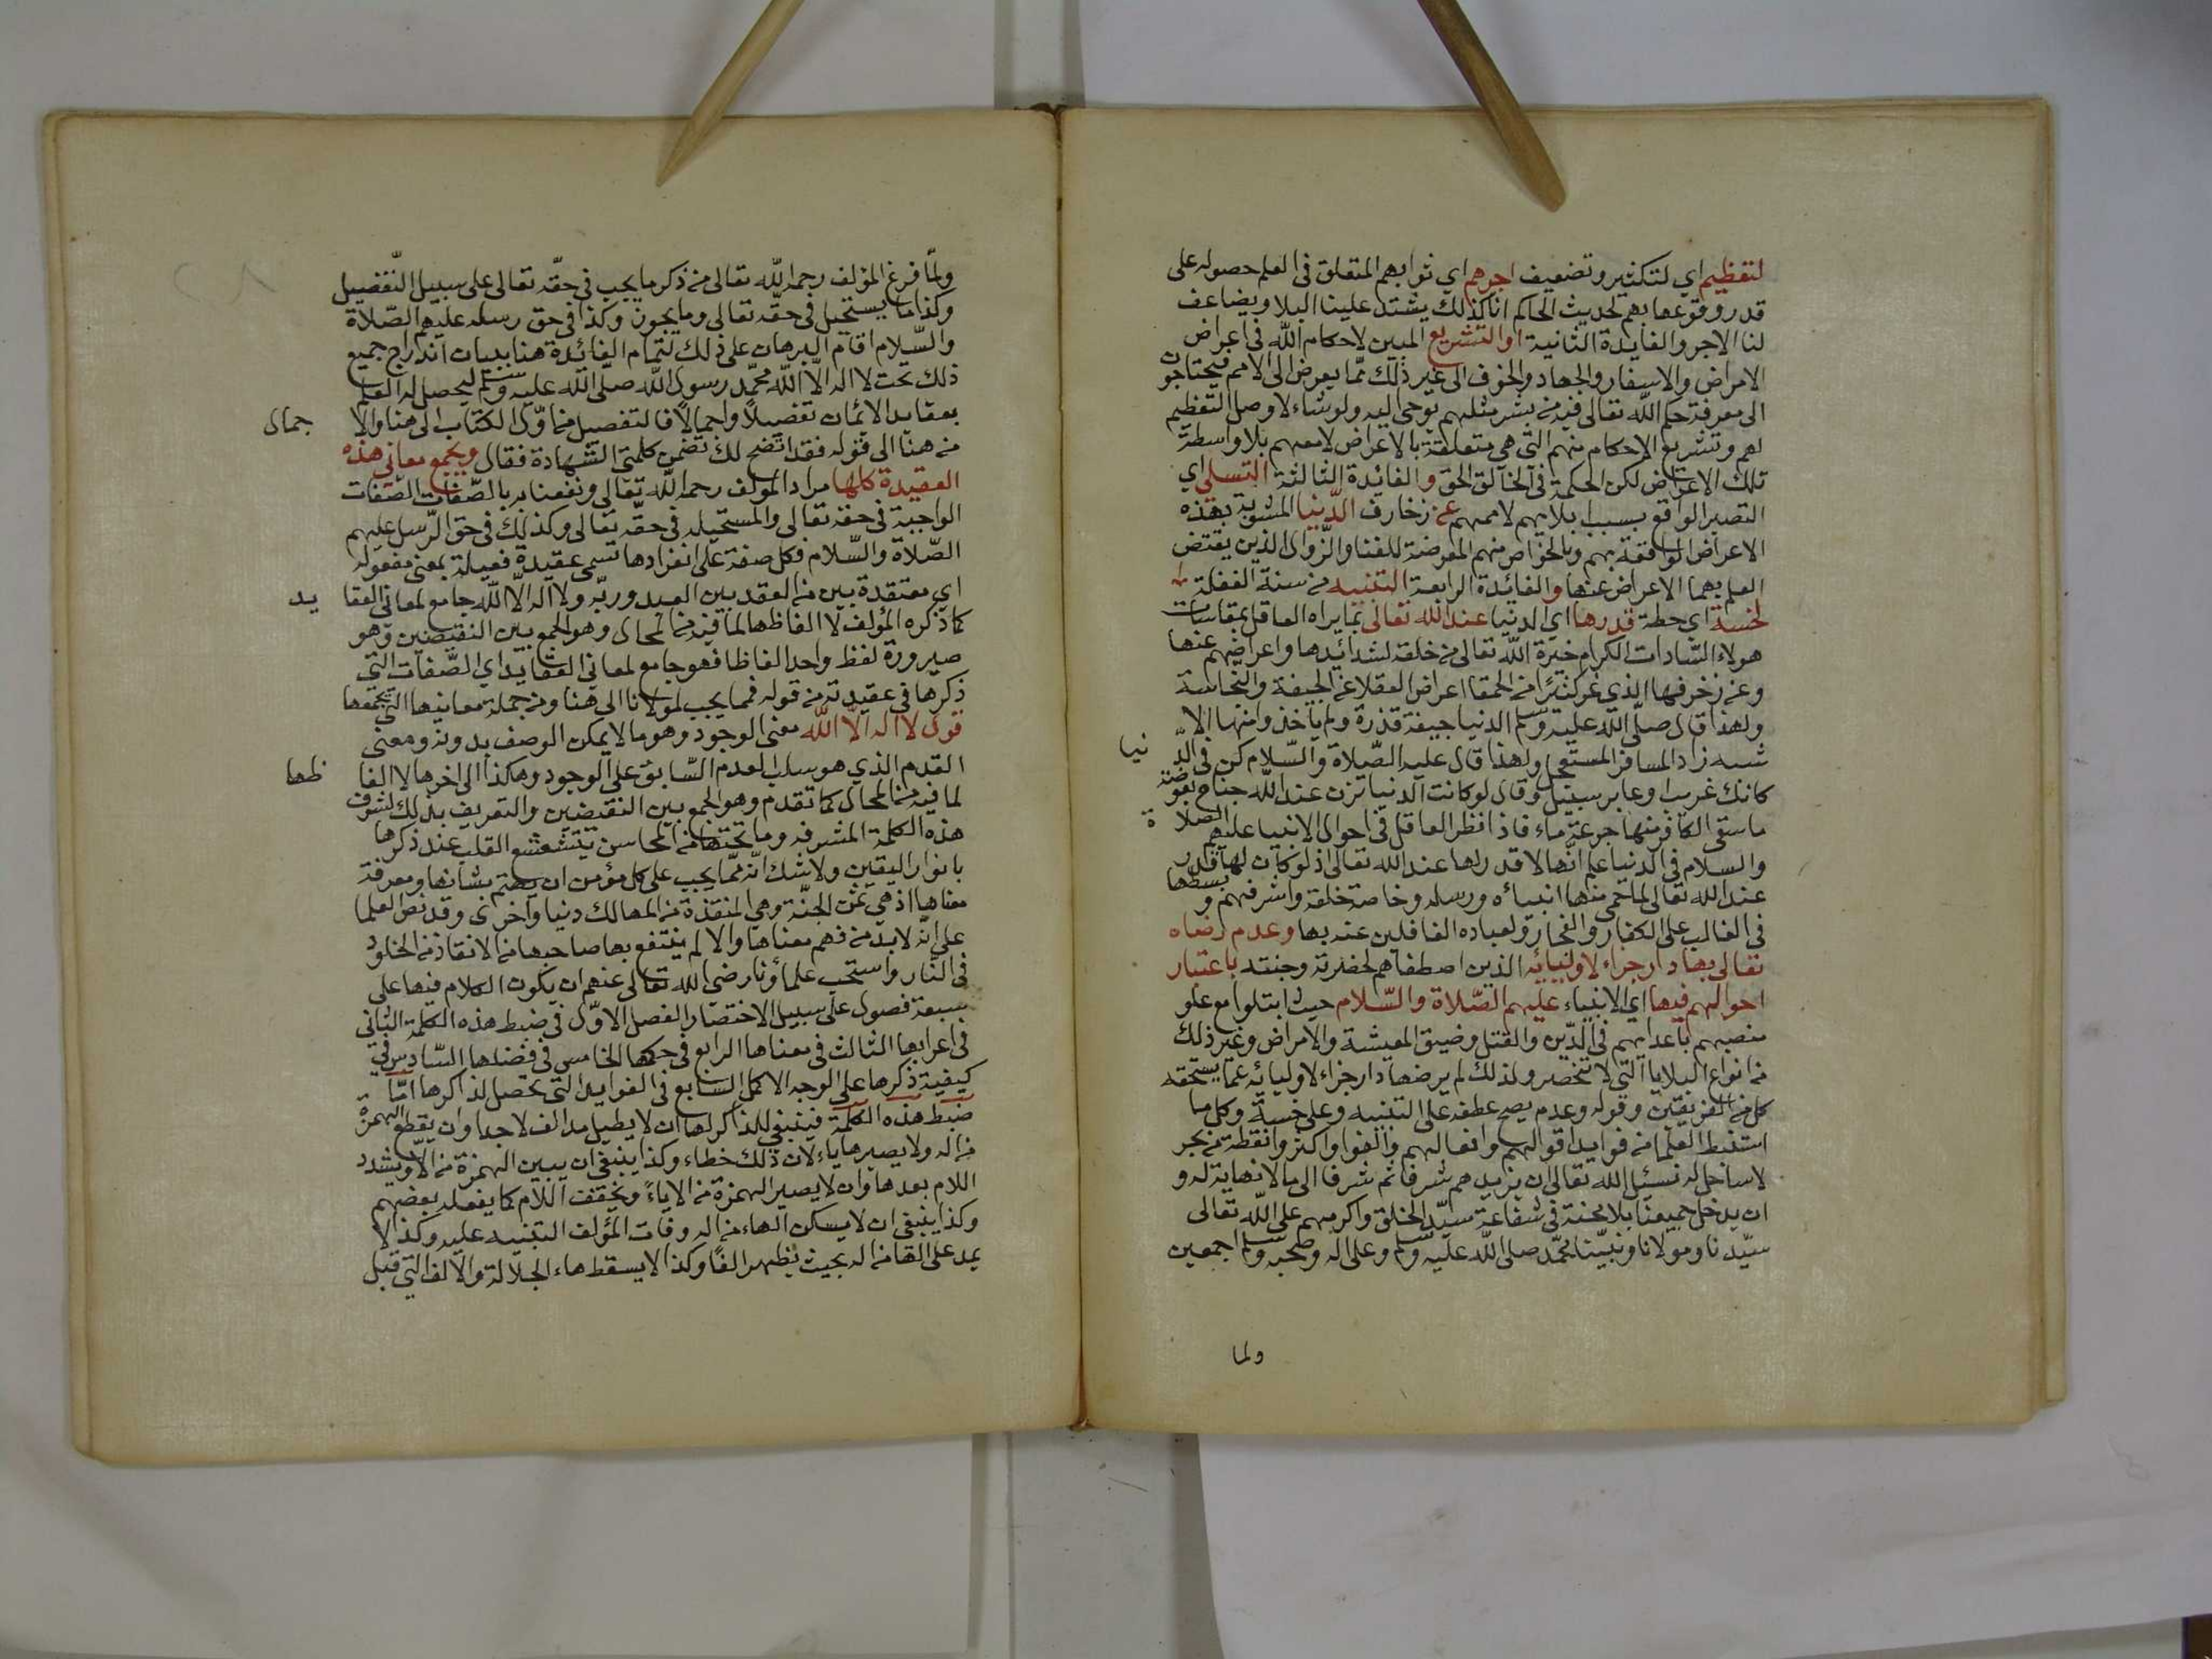 لتعظيم اي لتكثير وتضعيف اجرهم اي ثوابهم المتعلق في العلم حصوله على
قدر وقوعها بهم لحديث الحاكم انا كذلك يشتد علينا البلا ويضاعف
لنا الاجر والفايدة الثانية او التشريع المبين لاحكام الله في اعراض
الامراض والاسفار والجهاد والخوف الى غير ذلك مما يعرض الى الامم فيحتاجون
الى معرفة حكم الله تعالى فيه من بشر مثلهم يوحى اليه ولو شاء لاوصل التعظيم
لهم وتشريع الاحكام منهم التي هي متعلقة بالاعراض لامعهم بلا واسطة
تلك الاعراض لكن الحكمة في الخالق الحق والفائدة الثالثة التسلي اي
التصبر الواقع بسبب ابلايهم لاممهم عن زخارف الدنيا المشوبة بهذه
الاعراض الواقعة بهم وبالخواص منهم المعرضة للفنا والزوال الذين يقتض
العلم بهما الاعراض عنها والفائدة الرابعة التنبيه من سنة الغفلة
لخسة اي حطة قدرها اي الدنيا عند الله تعالى بما يراه العاقل بمقاسات
هولاء السادات الكرام خيرة الله تعالى من خلقه لشدائدها واعراضهم عنها
وعن زخرفها الذي غر كثيرًا من الحمقا اعراض العقلا عن الجيفة والنجاسة
ولهذا قال صلى الله عليه وسلم الدنيا جيفة قذرة ولم ياخذوا منها الا
شبه زاد المسافر المستعجل ولهذا قال عليه الصلاة والسلام كن في الد نيا
كانك غريب او عابر سبيل وقال لو كانت الدنيا تزن عند الله جناح بعوضة
ما سقى الكافر منها جرعة ماء فاذا نظر العاقل في احوال الانبيا عليهم الصلا ة
والسلام في الدنيا علم انها لا قدر لها عند الله تعالى اذ لو كان لها قدر
عند الله تعالى لما حمى منها انبياءه ورسله وخاصة خلقه واشرفهم وبسطها
في الغالب على الكفار والفجار ولعباده الغافلين عنه بها وعدم رضاه
تعالى بها دار جزاء لاوليائه الذين اصطفاهم لحضرته وجنته باعتبار
احوالهم فيها اي الانبياء عليهم الصلاة والسلام حيث ابتلوا مع علو
منصبهم باعدايهم في الدين والقتل وضيق المعيشة والامراض وغير ذلك
من انواع البلايا التي لا تنحصر ولذلك لم يرضها دار جزاء لاوليائه عما يستحقه
كل من الفريقين وقوله وعدم يصح عطفه على التنبيه وعلى خسة وكل ما
استنبط العلما من فوايد اقوالهم وافعالهم والفوا واكثروا نقطة من بحر
لا ساحل له نسئل الله تعالى ان يزيدهم شرفا ثم شرفا الى ما لا نهاية له و
ان يدخل جميعنا بلا محنة في شفاعة سيد الخلق واكرمهم على الله تعالى
سيدنا ومولانا ونبينا محمد صلى الله عليه وسلم وعلى اله وصحبه وسلم اجمعين
ولما
ولما فرغ المؤلف رحمه الله تعالى من ذكر ما يجب في حقه تعالى على سبيل التفضيل
وكذا ما يستحيل في حقه تعالى وما يجوز وكذا في حق رسله عليهم الصلاة
والسلام اقام البرهان على ذلك لتمام الفائدة هنا ببيان اندراج جميع
ذلك تحت لا اله الا الله محمد رسول الله صلى الله عليه وسلم ليحصل له العلم
بعقايد الايمان تفصيلاً واجمالاً فالتفصيل من اول الكتاب الى هنا والا جمال
من هنا الى قوله فقد اتضح لك تضمن كلمتي الشهادة فقال ويجمع معاني هذه
العقيدة كلها مراد المؤلف رحمه الله تعالى ونفعنا به بالصفات الصفات
الواجبة في حقه تعالى والمستحيله في حقه تعالى وكذلك في حق الرسل عليهم
الصلاة والسلام فكل صفة على انفرادها تسمى عقيدة فعيلة بمعنى مفعوله
اي معتقدة بين من العقد بين العبد وربه ولا اله الا الله جامع لمعاني العقا يد
كما ذكره المؤلف لا الفاظها لما فيه من المحال وهو الجمع بين النقيضين وهو
صيرورة لفظ واحد الفاظا فهو جامع لمعاني العقايد اي الصفات التي
ذكرها في عقيدته من قوله فمما يجب لمولانا الى هنا ومن جملة معانيها التي يجمعها
قول لا اله الا الله معنى الوجود وهو ما لا يمكن الوصف بدونه ومعنى
القدم الذي هو سلب العدم السابق على الوجود وهكذا الى اخرها لا الفا ظها
لما فيه من المحال كما تقدم وهو الجمع بين النقيضين والتعريف بذلك لشرف
هذه الكلمة المشرفه وما تحتها من المحاسن يتشعشع القلب عند ذكرها
بانوار اليقين ولا شك انه مما يجب على كل مؤمن ان يهتم بشانها ومعرفة
معناها اذ هي ثمن الجنة وهي المنقذة من المهالك دنيا واخرى وقد نص العلما
على انه لابد من فهم معناها والا لم ينتفع بها صاحبها من الانقاذ من الخلود
في النار واستحب علماؤنا رضي الله تعالى عنهم ان يكون الكلام فيها على
سبعة فصول على سبيل الاختصار الفصل الاول في ضبط هذه الكلمة الثاني
في اعرابها الثالث في معناها الرابع في حكمها الخامس في فضلها السادس في
كيفية ذكرها على الوجه الاكمل السابع في الفوايد التي تحصل لذاكرها اما
ضبط هذه الكلمة فينبغي للذاكر لها ان لا يطيل مد الف لا جدا وان يقطع الهمزة
من اله ولا يصيرها ياء لان ذلك خطاء وكذا ينبغي ان يبين الهمزة من الا ويشدد
اللام بعدها وان لا يصير الهمزة من الا ياءً ويخفف اللام كما يفعله بعضهم
وكذا ينبغي ان لا يسكن الهاء من اله وفات المؤلف التنبيه عليه وكذا لا
يمد على الها من اله بحيث يظهر الفًا وكذا لا يسقط هاء الجلالة والالف التي قبل